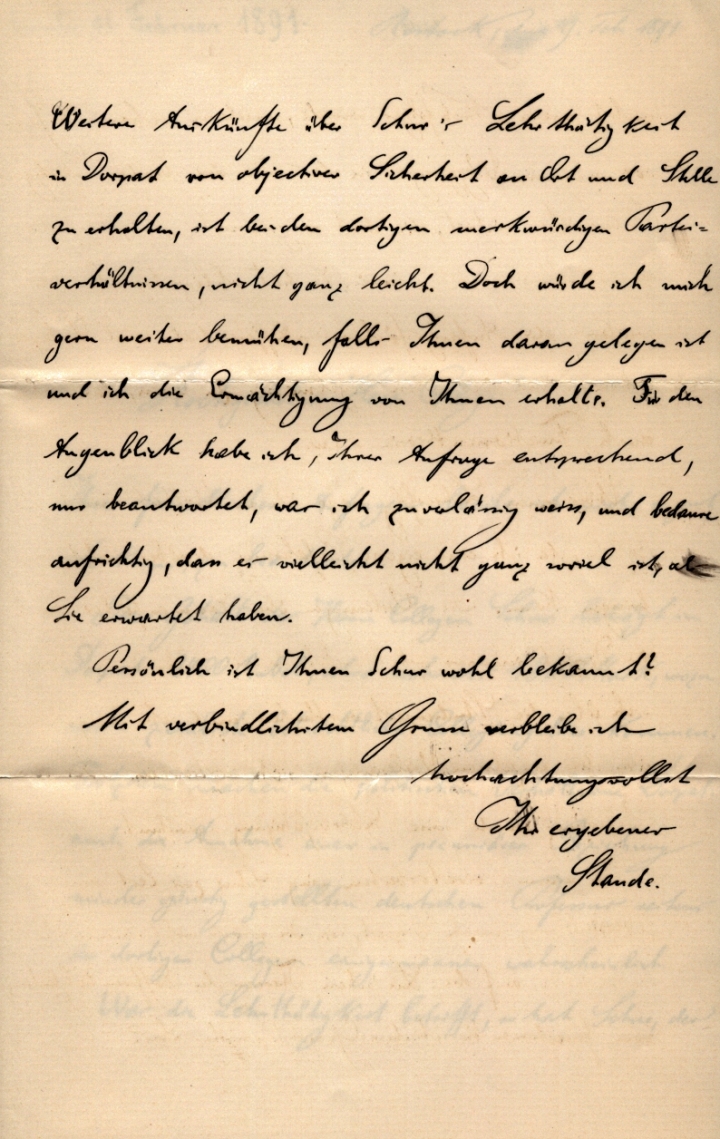 Weitere Auskünfte über Schur's Lehrthätigkeit
in Dorpat von objectiver Sicherheit an Ort und Stelle
zu erhalten, ist bei den dortigen merkwürdigen Partei-
verhältnissen, nicht ganz leicht. Doch würde ich mich
gern weiter bemühen, falls Ihnen daran gelegen ist
und ich die Ermächtigung von Ihnen erhalte. Für den
Augenblick habe ich, Ihrer Anfrage entsprechend,
nur beantwortet, was ich zuverlässig weiss, und bedaure
aufrichtig, dass es vielleicht nicht ganz soviel ist, als
Sie erwartet haben.
Persönlich ist Ihnen Schur wohl bekannt?
Mit verbindlichstem Grusse verbleibe ich
hochachtungsvollst
Ihr ergebener
Staude.